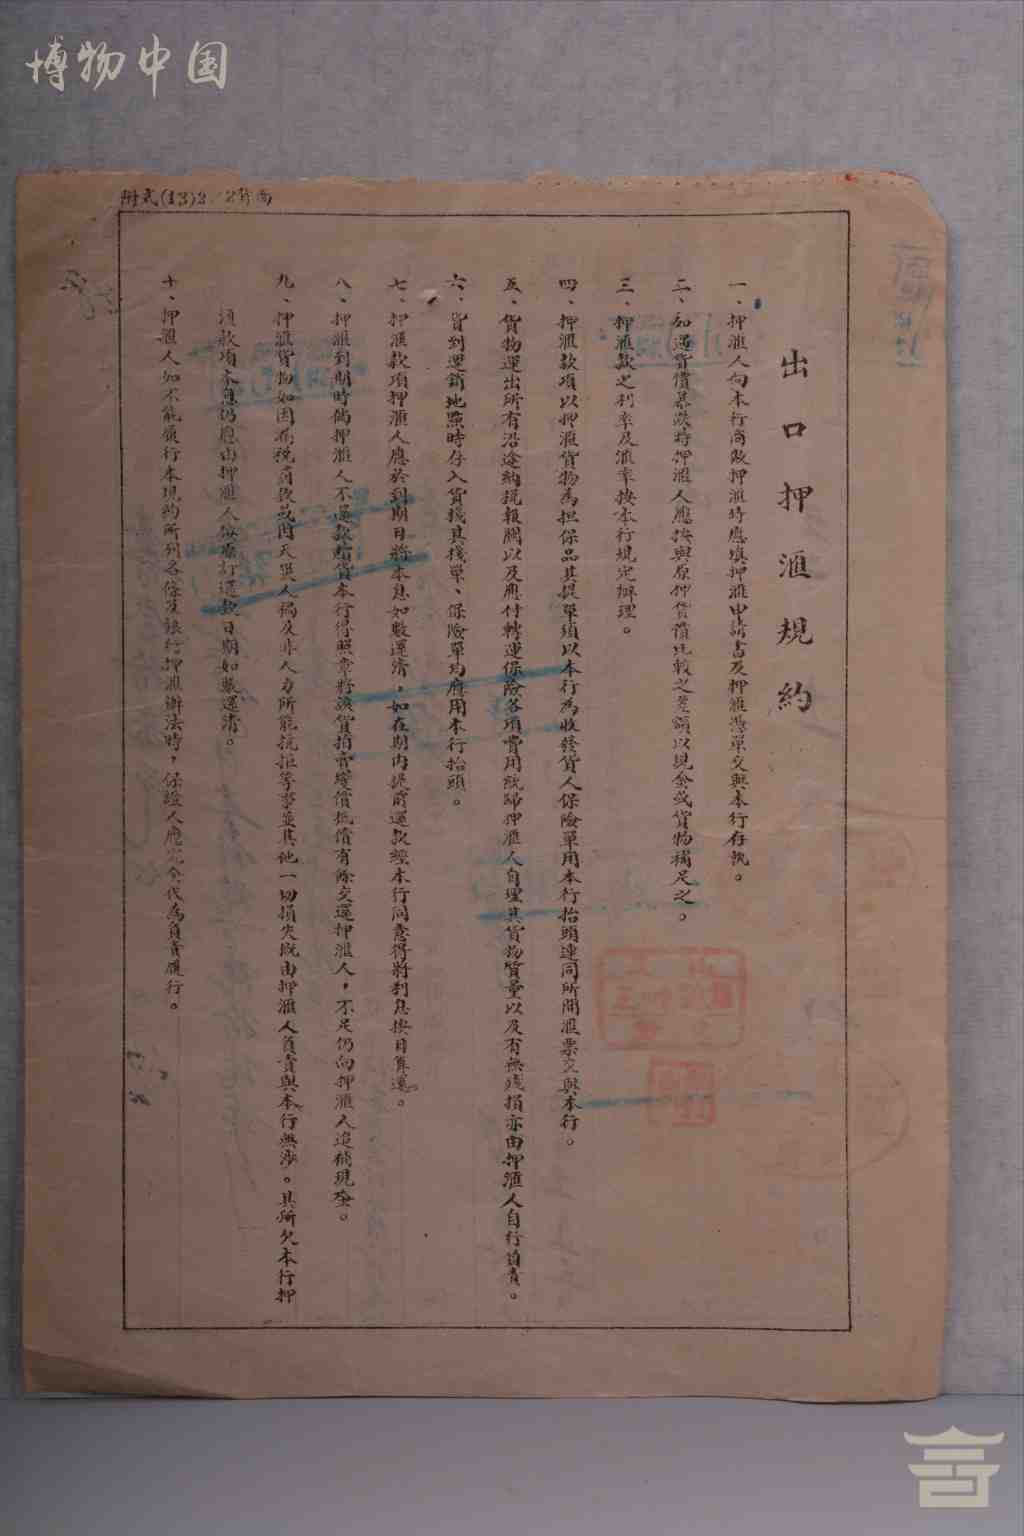 博物中国
附式(13)2
出口押滙規約
一、押滙人向本行商做押滙時應填押滙申請書及押滙憑單交與本行存執。
二、如遇貨價暴跌時押滙人應按與原押貨價比較之差額以現金或貨物補足之。
三、押滙款之利率及滙率按本行規定辦理。
四、押滙款項以押滙貨物為担保品其提單須以本行為收發貨人保險單用本行抬頭連同所開滙票交與本行。
五、貨物運出所有沿途納稅報關以及應付轉運保險各項費用統歸押滙人自理其貨物質量以及有無殘損亦由押滙人自行負責。
六、貨到運銷地點時存入貨棧其棧單、保險單均應用本行抬頭。
七、押滙款項押滙人應於到期日將本息如數還清，如在期內提前還款經本行同意得將利息按日算還。
八、押滙到期時倘押滙人不還款贖貨本行得照章將該貨拍賣變價抵償有餘交還押滙人，不足仍向押滙人追補現金。
九、押滙貨物如因漏稅肩被或因天災人禍及非人力所能抗拒等事並其他一切損失概由押滙人負責與本行無涉。其所欠本行押
滙款項本息仍應由押滙人按原訂還款日期如數還清。
十、押滙人如不能履行本規約所列各條及銀行押滙辦法時，保證人應完全代為負責履行。